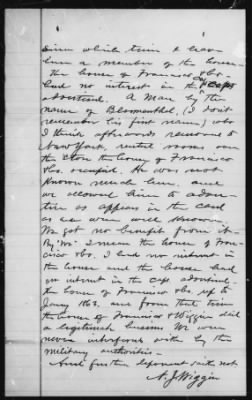 since which time I have
been a member of the house
The house of Francisco &co.
had no interest in the Caps
advertised. A Man by the
name of Blumenthal, (I don't
remember his first name) who
I think afterwards removed to
New York, rented rooms over
the store the house of Francisco
&co. occupied. He was not
known much here, and
we allowed him to adver-
tise as appears in the card
as we were well known.
We got no benefit from it.
By "We" I mean the house of Fran-
cisco &co. I had no interest in
the house and the house had
no interest in the Caps advertised.
the house of Francisco &co. up to
Jany 1863. and from that time
the house of Francisco & Wiggin did
a legitimate business. We were
never interfered with by the
military authorities.
And further deponent saith not
A. J. Wiggin